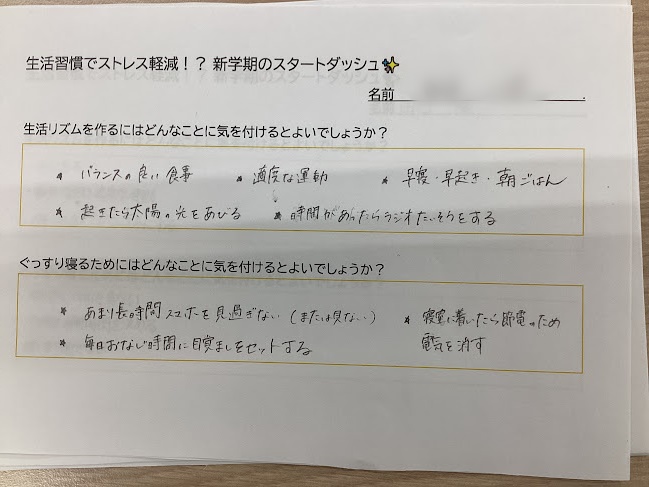 生活習慣でストレス軽減！？ 新学期のスタートダッシュ✨
名前
生活リズムを作るにはどんなことに気を付けるとよいでしょうか？
* バランスの良い食事 * 適度な運動 * 早寝・早起き・朝ごはん
* 起きたら太陽の光をあびる * 時間があったらラジオたいそうをする
ぐっすり寝るためにはどんなことに気を付けるとよいでしょうか？
* あまり長時間スマホを見過ぎない（または見ない） * 寝室に着いたら節電のため
* 毎日おなじ時間に目覚ましをセットする 電気を消す